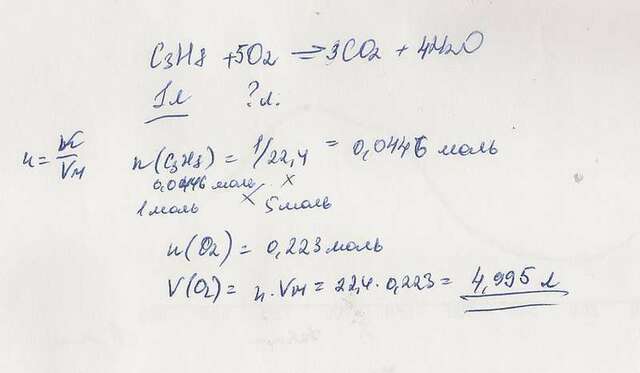 C3H8 + 5O2 = 3CO2 + 4H2O
1л ?л.
n = V/Vм n(C3H8) = 1/22,4 = 0,0446 моль
0,0446 моль x
1 моль 5 моль
n(O2) = 0,223 моль
V(O2) = n · Vм = 22,4 · 0,223 = 4,995 л